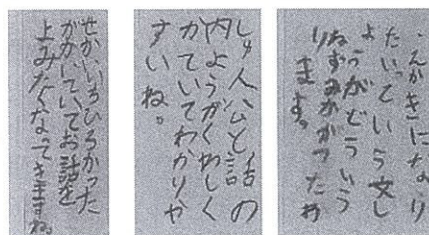 んかきになり
たいっていう文し
ょうがどういう
ねずみかがつたわ
ります。
しゅ人公と話の
内ようがくわしく
かていてわかりや
すいね。
せかいいちひろかった
がかいていてお話を
よみたくなってきますね。